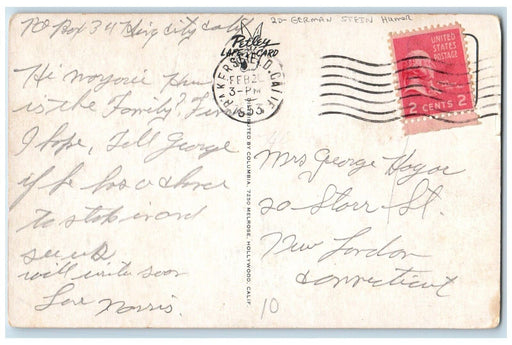 PO Box 34 King City Calif
Hi Marjorie How
is the Family? Fine
I hope, Tell George
if he has a chance
to stop in and
see us
will write soon
Love Norris.
20- GERMAN Humor
Petley
LAFF-CARD
BAKERSFIELD, CALIF.
FEB 2
3-PM
1953
DISTRIBUTED BY COLUMBIA, 7250 MELROSE, HOLLYWOOD, CALIF.
UNITED
STATES
POSTAGE
2 CENTS 2
Mrs George Hogue
20 Starr St.
New London
Connecticut
10